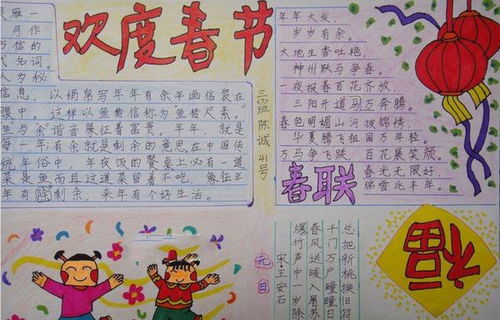 欢度春节
雁一
可作
写信的
式名词。
人为秘
信息，以绢帛写年年有余年画信装在
眼中。这样以鱼被信称为“鱼传尺素”。
鱼与余谐音象征着富贵，年年，就是
每一年有余就是剩余的意思在中国传
统年俗中，年夜饭的餐桌上必有一道
菜是鱼而且这道菜留着不吃，象征年
年有剩余，来年有个好生活。
三班 陈诚 41号
年年大发，
岁岁有余。
大地生香吐艳
神州跃马争春。
一夜报春百花齐放
三阳开道万马奔腾。
春色明媚山河披锦绣，
华夏腾飞祖国万年轻。
万马争飞跃，百花展笑颜。
春光无限好，
瑞雪兆丰年。
春联
福
元日
宋王安石
爆竹声中一岁除
春风送暖入屠苏
千门万户瞳瞳日
总把新桃换旧符